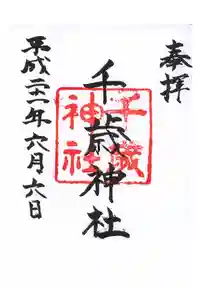 奉拝
千歳神社
千歳神社
平成二十一年六月六日